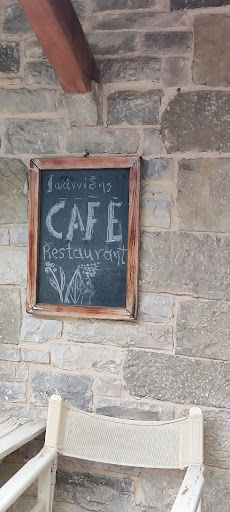 Ιωάννίδης
CAFÉ
Restaurant